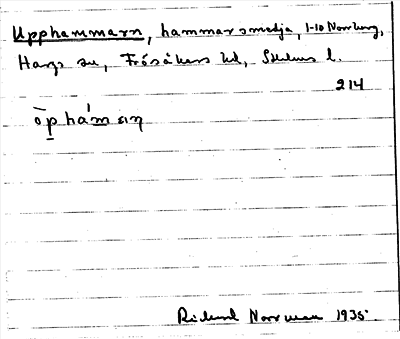 Upphammarn, hammarsmedja, 1-10 Norrberg,
Hargs sn, Frösåkers hd, Sthlms l.
214
ōp hám aŋ
Rickard Norrman 1935.